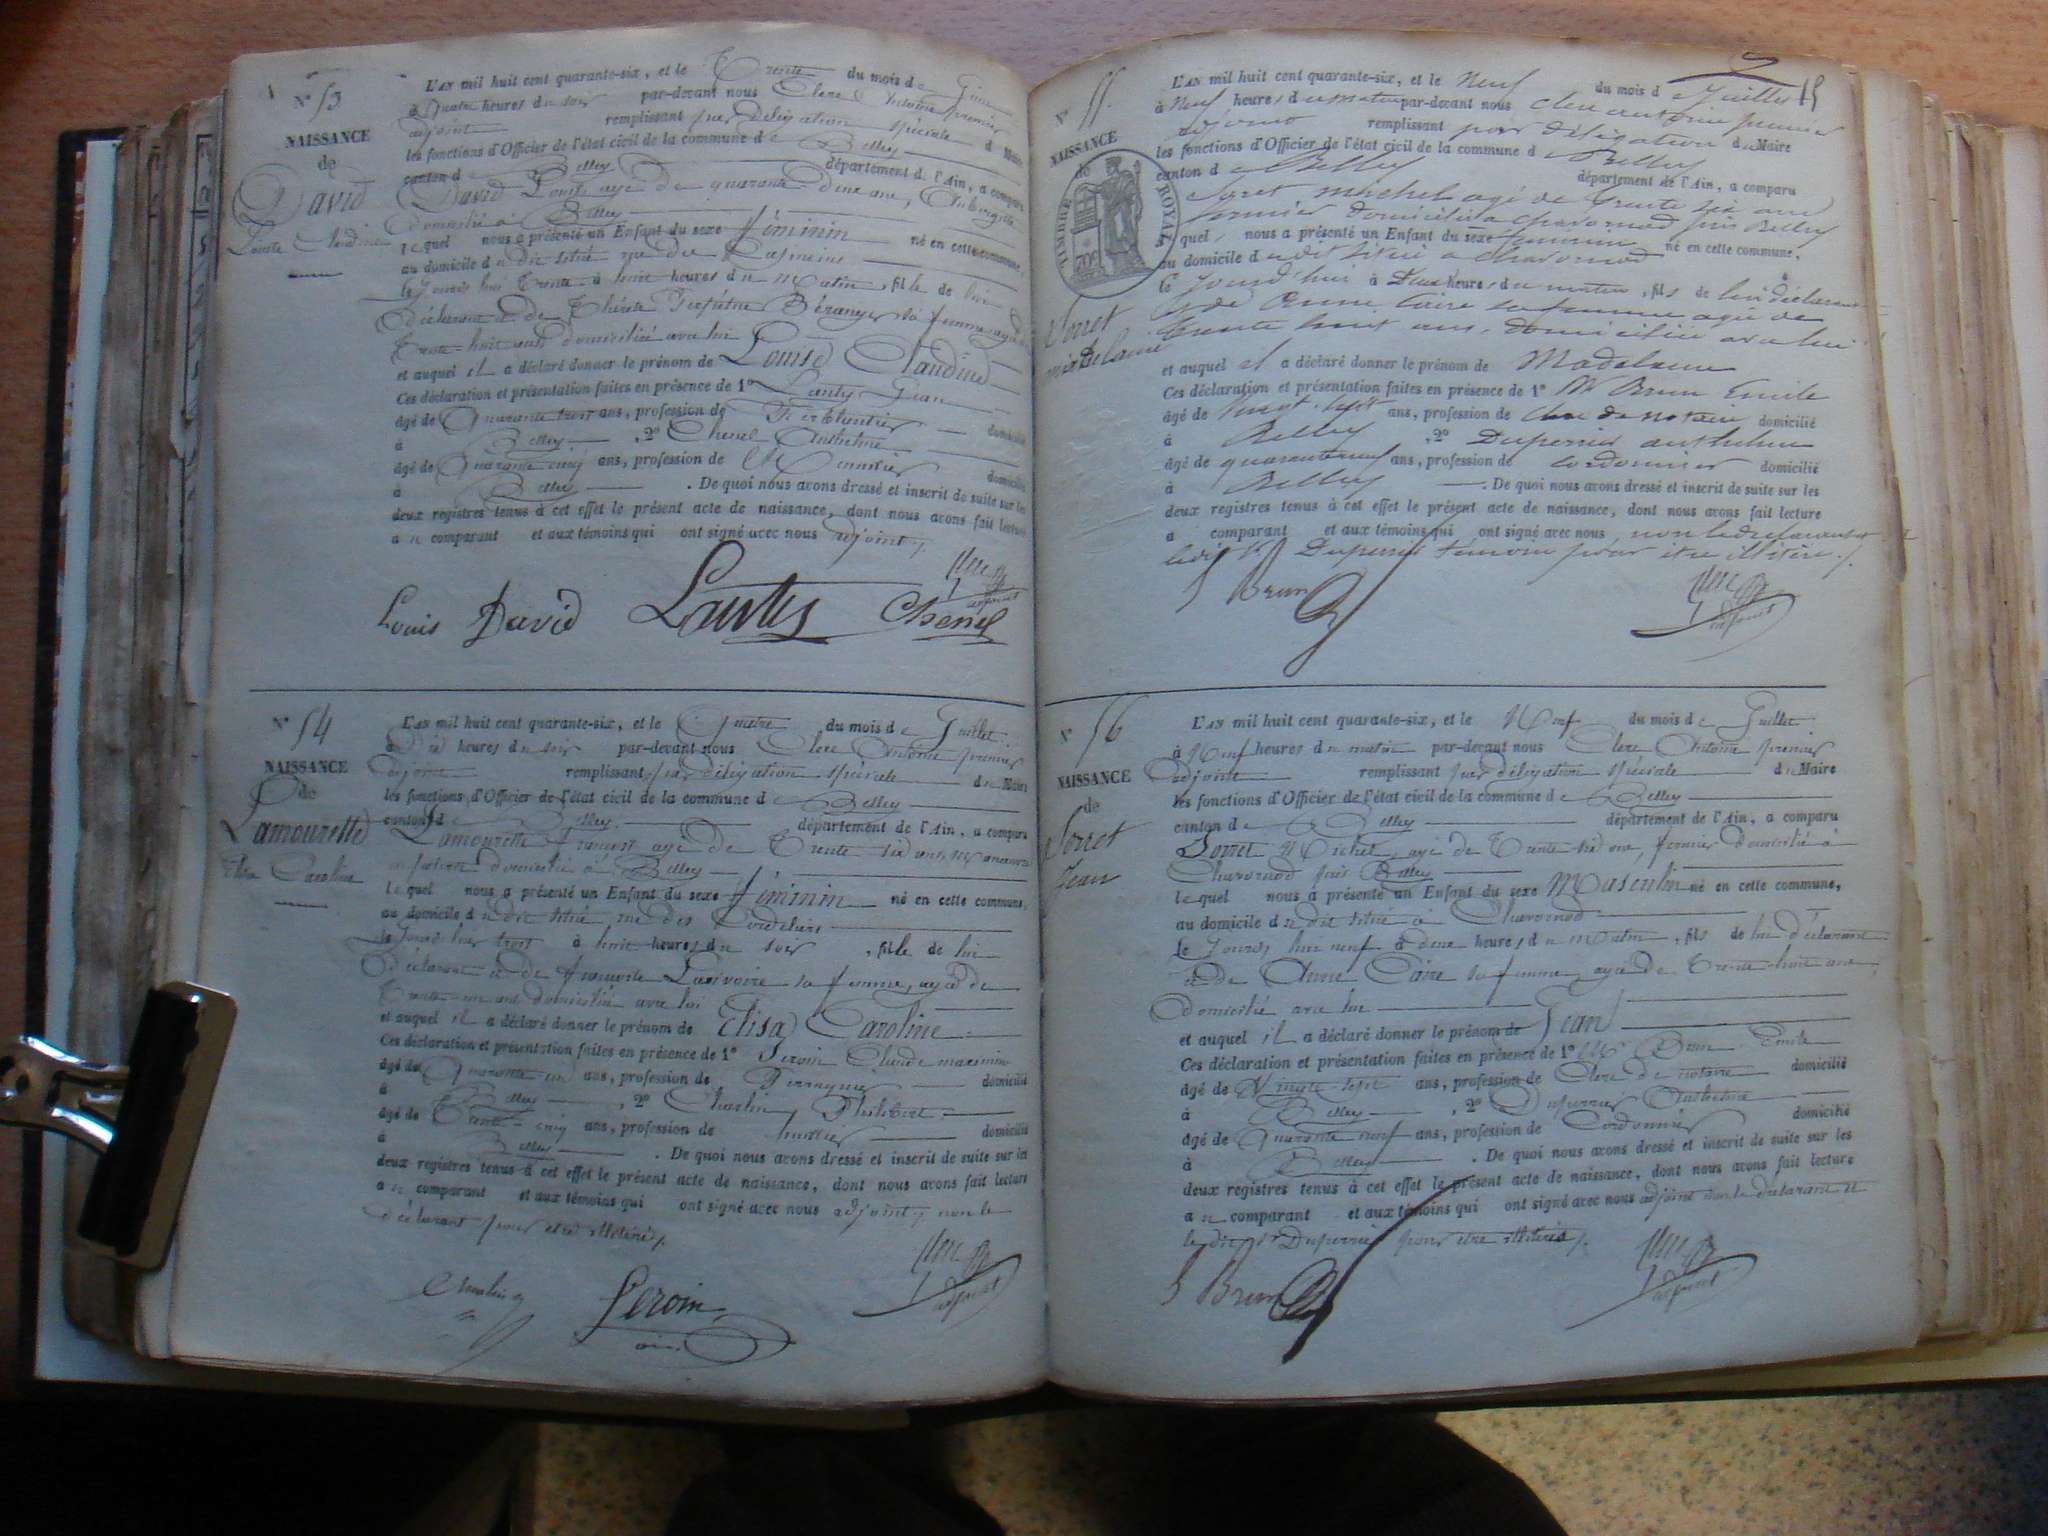 N° 53
NAISSANCE
de
David
Louise Claudine
L'AN mil huit cent quarante-six, et le Trente du mois de Juin
à quatre heures du soir par-devant nous Clerc Antoine premier
adjoint remplissant par délégation spéciale du Maire
les fonctions d'Officier de l'état civil de la commune de Belley
canton de Belley département de l'Ain, a comparu
David Louis âgé de quarante deux ans, Aubergiste
domicilié à Belley
lequel nous a présenté un Enfant du sexe féminin né en cette commune,
au domicile du dit situé rue des
le jourd'hui Trente à huit heures du matin, fille de lui
déclarant et de Thérèse Béranger sa femme, agée de
Trente-huit ans domiciliée avec lui
et auquel il a déclaré donner le prénom de Louise Claudine
Ces déclaration et présentation faites en présence de 1° Lautys Jean
âgé de Quarante trois ans, profession de Ferblantier domicilié
à Belley, 2° Chenel Anthelme
âgé de Quarante cinq ans, profession de Menuisier domicilié
à Belley. De quoi nous avons dressé et inscrit de suite sur les
deux registres tenus à cet effet le présent acte de naissance, dont nous avons fait lecture
au comparant et aux témoins qui ont signé avec nous adjoint
Louis David
Chenel
adjoint
N° 54
NAISSANCE
de
Lamourette
Elisa Caroline
L'AN mil huit cent quarante-six, et le Quatre du mois de Juillet
à Dix heures du soir par-devant nous Clerc Antoine premier
adjoint remplissant par délégation spéciale du Maire
les fonctions d'Officier de l'état civil de la commune de Belley
canton de Belley département de l'Ain, a comparu
Lamourette François agé de Trente six ans,
domicilié à Belley
lequel nous a présenté un Enfant du sexe féminin né en cette commune,
au domicile du dit situé, rue des Cordeliers
le Jourd'hui trois à huit heures du soir, fille de lui
déclarant et de sa femme, agée de
Trente-un ans domiciliée avec lui
et auquel il a déclaré donner le prénom de Elisa Caroline
Ces déclaration et présentation faites en présence de 1° Peroin Claude
âgé de Quarante un ans, profession de Perruquier domicilié
à Belley, 2° Charlin Philibert
âgé de Trente-cinq ans, profession de huissier domicilié
à Belley. De quoi nous avons dressé et inscrit de suite sur les
deux registres tenus à cet effet le présent acte de naissance, dont nous avons fait lecture
au comparant et aux témoins qui ont signé avec nous adjoint, non le
déclarant pour etre illitéré.
Peroin
adjoint
15
N° 55
NAISSANCE
de
TIMBRE ROYAL
Sorret
Madelaine
L'AN mil huit cent quarante-six, et le Neuf du mois de Juillet
à Neuf heures du matin par-devant nous Clerc antoine premier
adjoint remplissant par délégation du Maire
les fonctions d'Officier de l'état civil de la commune de Belley
canton de Belley département de l'Ain, a comparu
Sorret michel agé de Trente six ans
fermier domicilié a Chavornod près Belley
lequel nous a présenté un Enfant du sexe feminin né en cette commune,
au domicile du dit situé a Chavornod
le jourd'hui à Deux heures du matin, fils de lui déclarant
et de Anne Caire sa femme agée de
Trente huit ans, domiciliée avec lui
et auquel il a déclaré donner le prénom de Madelaine
Ces déclaration et présentation faites en présence de 1° Mr Brun Emile
âgé de vingt-sept ans, profession de clerc de notaire domicilié
à Belley, 2° Duperrier anthelme
âgé de quaranteneuf ans, profession de cordonnier domicilié
à Belley. De quoi nous avons dressé et inscrit de suite sur les
deux registres tenus à cet effet le présent acte de naissance, dont nous avons fait lecture
a comparant et aux témoins qui ont signé avec nous non le déclarant et
ledit Sr Duperrier témoin pour etre illitéré.
Brun
adjoint
N° 56
NAISSANCE
de
Sorret
Jean
L'AN mil huit cent quarante-six, et le Neuf du mois de Juillet
à Neuf heures du matin par-devant nous Clerc Antoine premier
adjoint remplissant par délégation spéciale du Maire
les fonctions d'Officier de l'état civil de la commune de Belley
canton de Belley département de l'Ain, a comparu
Sorret Michel, agé de Trente-six ans, fermier domicilié à
Chavornod près Belley
lequel nous a présenté un Enfant du sexe Masculin né en cette commune,
au domicile du dit situé à Chavornod
le Jourd'hui neuf à deux heures du matin, fils de lui déclarant
et de Anne Caire sa femme, agée de Trente-huit ans,
Domicilié avec lui
et auquel il a déclaré donner le prénom de Jean
Ces déclaration et présentation faites en présence de 1° Mr Brun Emile
âgé de Vingt-sept ans, profession de Clerc de notaire domicilié
à Belley, 2° Duperrier Anthelme
âgé de Quarante neuf ans, profession de Cordonnier domicilié
à Belley. De quoi nous avons dressé et inscrit de suite sur les
deux registres tenus à cet effet le présent acte de naissance, dont nous avons fait lecture
au comparant et aux témoins qui ont signé avec nous adjoint non le déclarant et
le dit Sr Duperrier pour etre illitéré.
Brun
adjoint